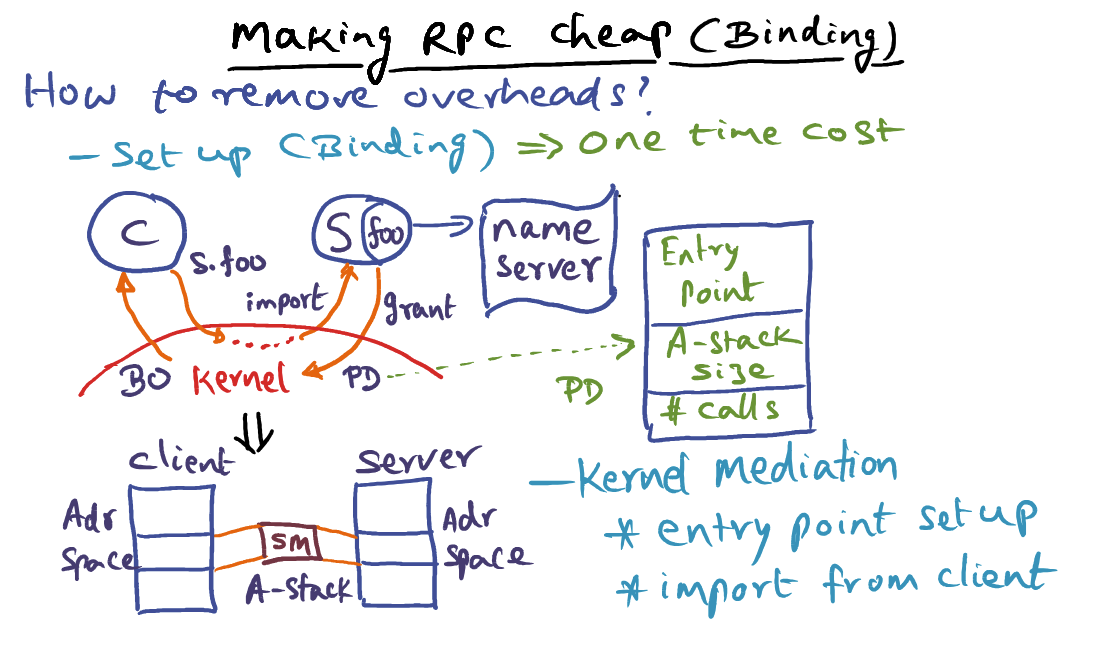 Making RPC cheap (Binding)
How to remove overheads?
- Set up (Binding) ⇒ One time cost
C
S
foo
name
server
s.foo
import
grant
BO
Kernel
PD
PD
Entry
Point
A-stack
size
# calls
client
server
Adr
Space
SM
A-stack
Adr
Space
- Kernel mediation
* entry point set up
* import from client